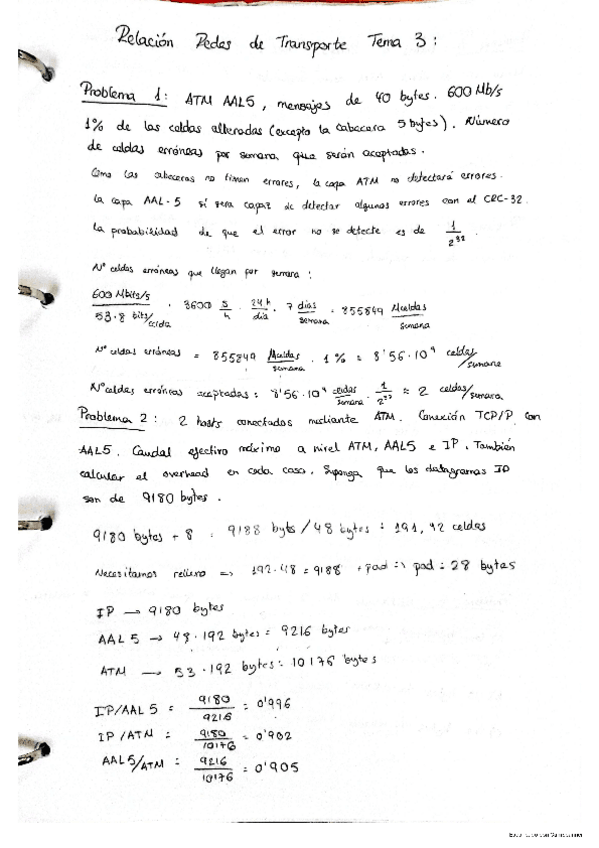 Relación Redes de Transporte Tema 3:
Problema 1: ATM AAL5, mensajes de 40 bytes. 600 Mb/s
1% de las celdas alteradas (excepto la cabecera 5 bytes). Número
de celdas erróneas por semana que serán aceptadas.
Como las cabeceras no tienen errores, la capa ATM no detectará errores.
La capa AAL-5 sí sera capaz de detectar algunos errores con el CRC-32.
La probabilidad de que el error no se detecte es de 1/2^32.
Nº celdas erróneas que llegan por semana:
600 Mbits/s / 53·8 bits/celda · 3600 s/h · 24 h/día · 7 días/semana = 855849 Mceldas/semana
Nº celdas erróneas = 855849 Mceldas/semana · 1% = 8'56·10^9 celdas/semana
Nº celdas erróneas aceptadas = 8'56·10^9 celdas/semana · 1/2^32 ≈ 2 celdas/semana
Problema 2: 2 hosts conectados mediante ATM. Conexión TCP/IP con
AAL5. Caudal efectivo máximo a nivel ATM, AAL5 e IP. También
calcular el overhead en cada caso. Suponga que los datagramas IP
son de 9180 bytes.
9180 bytes + 8 = 9188 bytes / 48 bytes = 191,42 celdas
Necesitamos relleno => 192·48 = 9188 + pad => pad = 28 bytes
IP → 9180 bytes
AAL5 → 48·192 bytes = 9216 bytes
ATM → 53·192 bytes = 10176 bytes
IP/AAL5 = 9180/9216 = 0'996
IP/ATM = 9180/10176 = 0'902
AAL5/ATM = 9216/10176 = 0'905